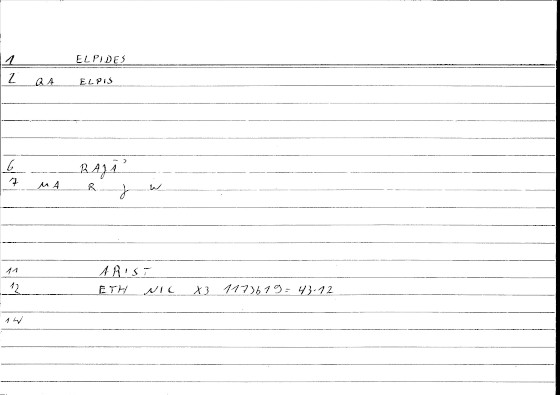 1 ELPIDES
2 QA ELPIS
6 RAJĀʾ
7 MA R J W
11 ARIST
12 ETH NIC X3 1173b19 = 43.12
14